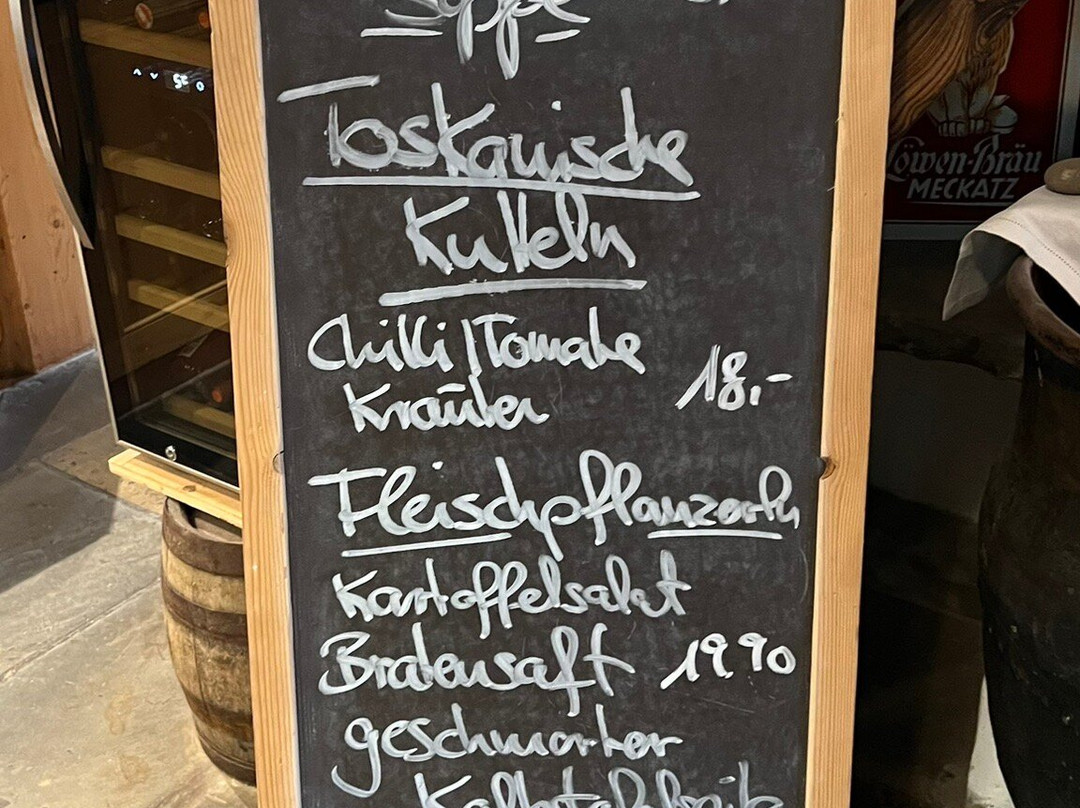 Suppe
Toskanische
Kutteln
Chilli/Tomate
Kräuter 18,-
Fleischpflanzerln
Kartoffelsalat
Bratensaft 19.90
geschmorter
Löwen-Bräu
MECKATZ